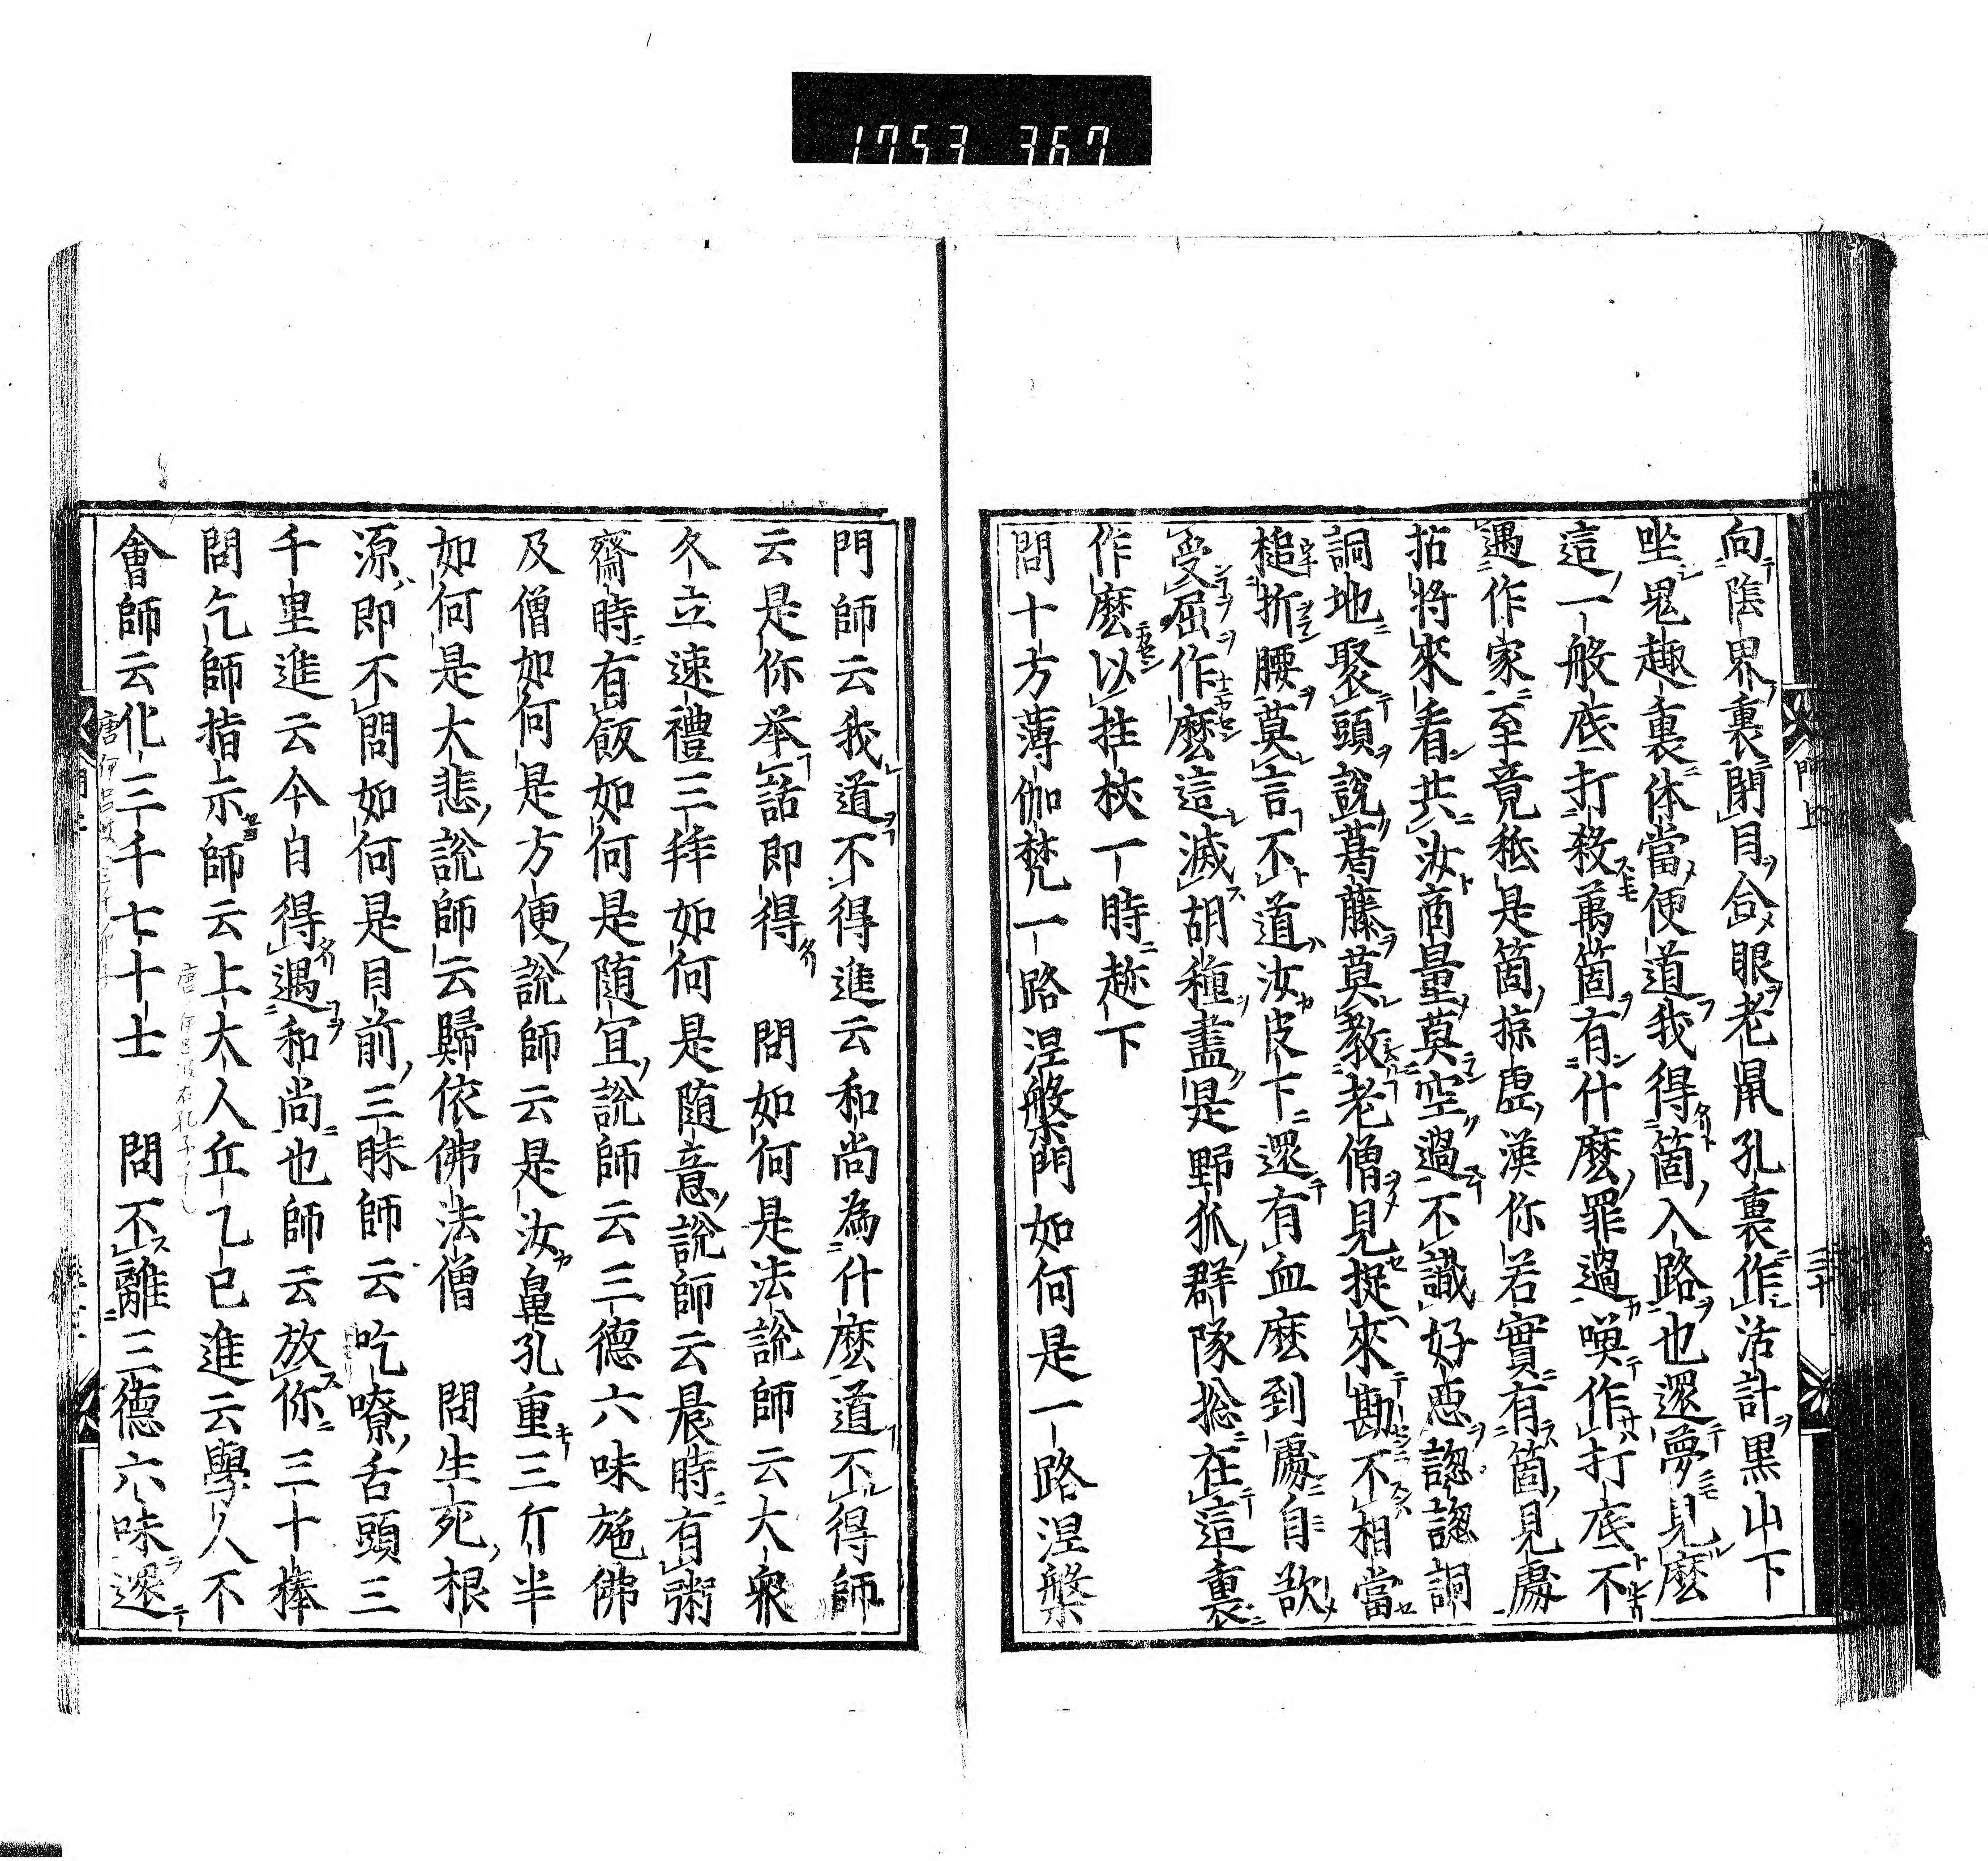 1753 367
向陰界裏閉目合眼老鼠孔裏作活計黒山下
坐鬼趣裏体當便道我得箇入路也還夢見麼
這一般底打殺萬箇有什麼罪過喚作打底不
遇作家至竟秖是箇掠虛漢你若實有箇見處
拈將來看共汝商量莫空過不識好惡𧫡𧫡詷
詷地聚頭說葛藤莫教老僧見捉來勘不相當
槌折腰莫言不道汝皮下還有血麼到處自欲
受屈作麼這滅胡種盡是野狐群隊捴在這裏
作麼以拄杖一時趂下
問十方薄伽梵一路涅槃門如何是一路涅槃
門師云我道不得進云和尚為什麼道不得師
云是你举話即得　問如何是法說師云大衆
久立速禮三拜如何是随意說師云晨時有粥
齋時有飯如何是随冝說師云三德六味施佛
及僧如何是方便說師云是汝鼻孔重三斤半
如何是大悲說師云歸依佛法僧　問生死根
源即不問如何是目前三昧師云吃嘹舌頭三
千里進云今自得遇和尚也師云放你三十棒
問乞師指示師云上大人丘乙已進云學人不
會師云化三千七十士　問不離三德六味還